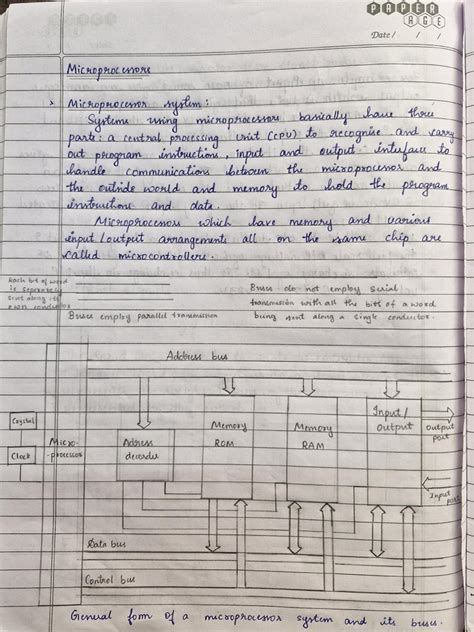 PAPER
AGE
Date / / /
Microprocessors
> Microprocessor system:
Systems using microprocessors basically have three
parts: a central processing unit (CPU) to recognise and carry
out program instruction, input and output interface to
handle communications between the microprocessor and
the outside world and memory to hold the program
instructions and data.
Microprocessors which have memory and various
input/output arrangements all on the same chip are
called microcontrollers.
Each bit of word
is separately
sent along its
own conductor
Buses employ parallel transmission
Buses do not employ serial
transmission with all the bits of a word
being sent along a single conductor.
Address bus
Crystal
Clock
Micro-
-processor
Address
decoder
Memory
ROM
Memory
RAM
Input/
Output
Output
port
Input
port
Data bus
Control bus
General form of a microprocessor system and its buses.